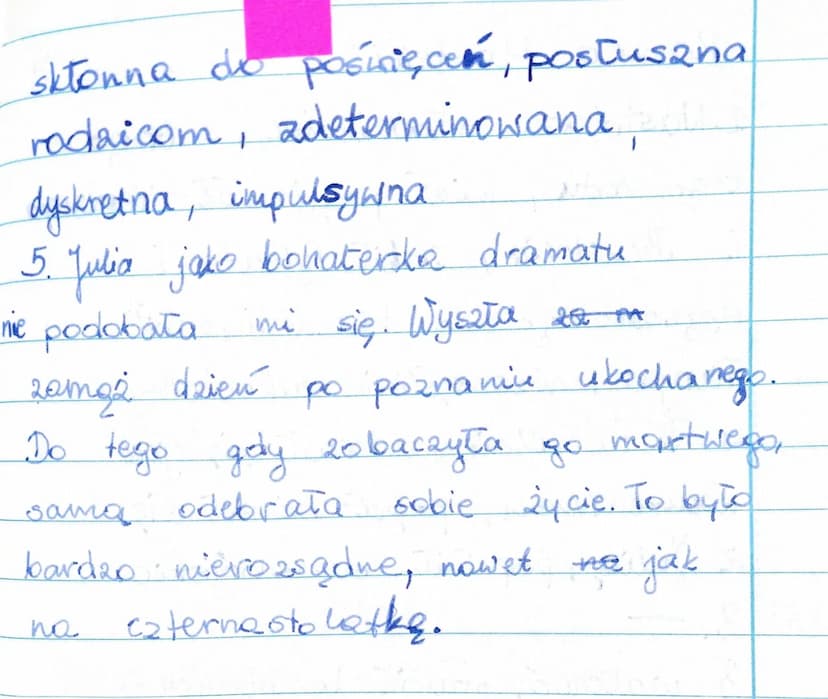 skłonna do poświęceń, posłuszna
rodzicom, zdeterminowana,
dyskretna, impulsywna
5. Julia jako bohaterka dramatu
nie podobała mi się. Wyszła za m
zamąż dzień po poznaniu ukochanego.
Do tego gdy zobaczyła go martwego,
sama odebrała sobie życie. To było
bardzo nierozsądne, nawet na jak
na czternastolatkę.